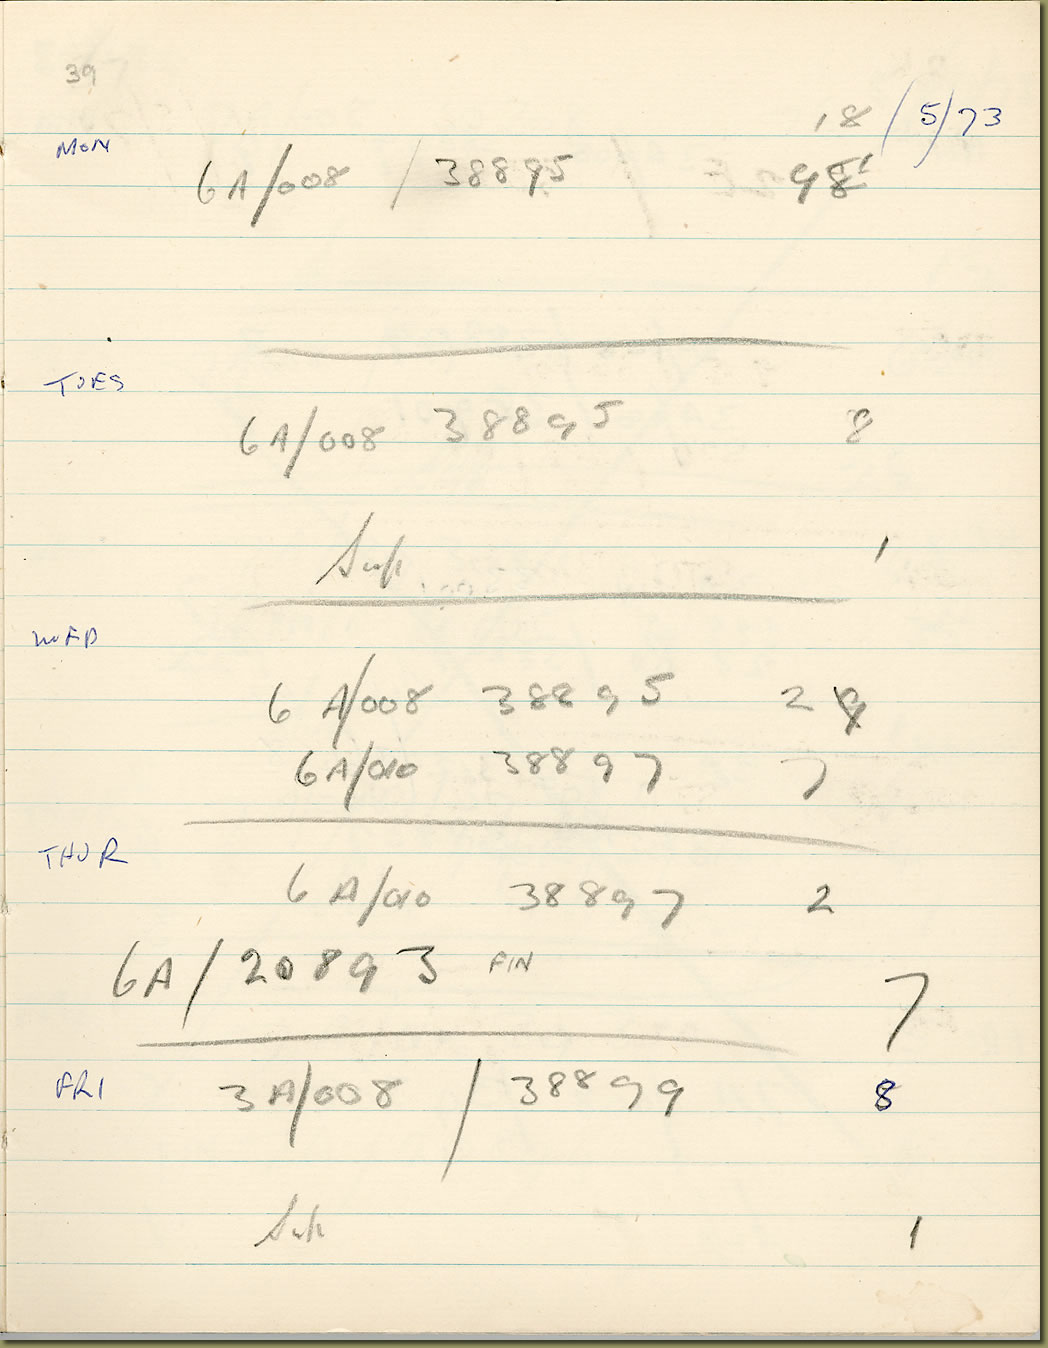 39
18/5/73
MON
6A/008 / 38895 9
TUES
6A/008 38895 8
Sup 1
WED
6 A/008 38895 2
6A/010 38897 7
THUR
6 A/010 38897 2
6A/20893 FIN 7
FRI 3A/008 / 38899 8
Sup 1